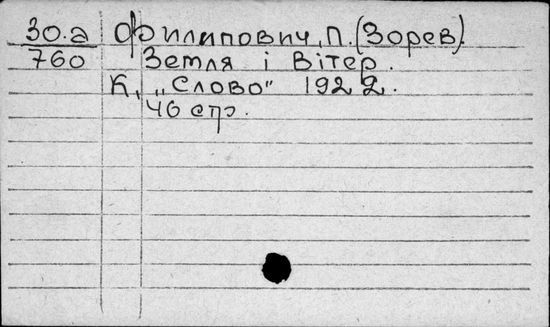 30.а Филипович, П. (Зорев).
760 Земля і Вітер.
К, „Слово" 1922.
46 стр.